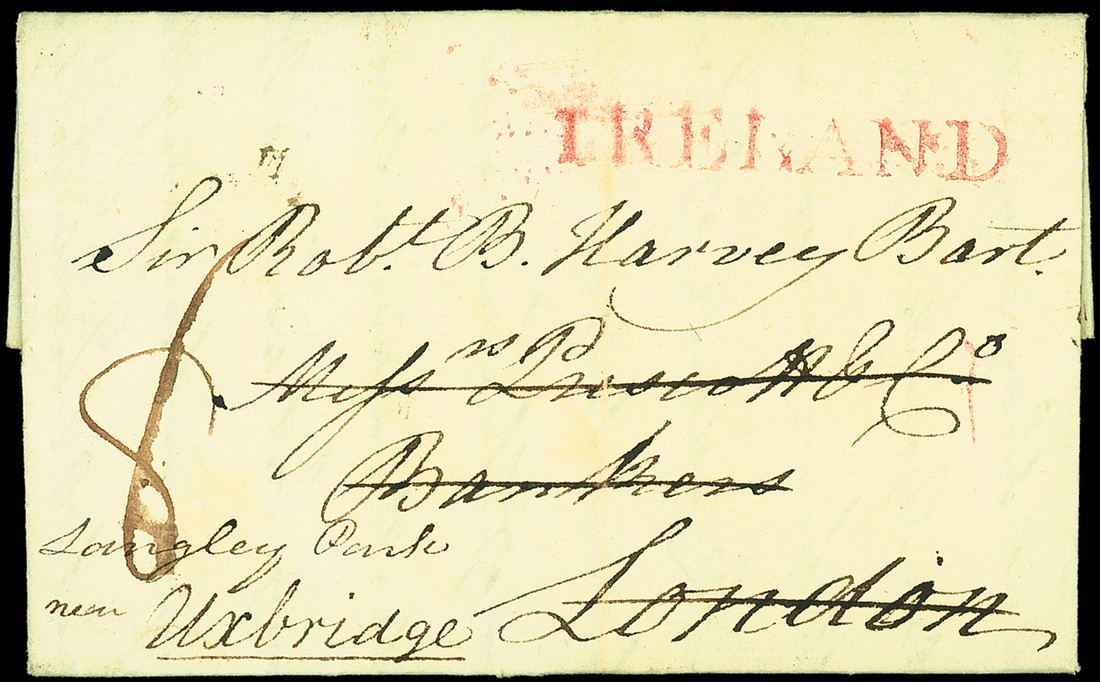 IRELAND
Sir Robt. B. Harvey Bart.
Messrs Prescott & Co
Bankers
London
Langley Park
near Uxbridge
8